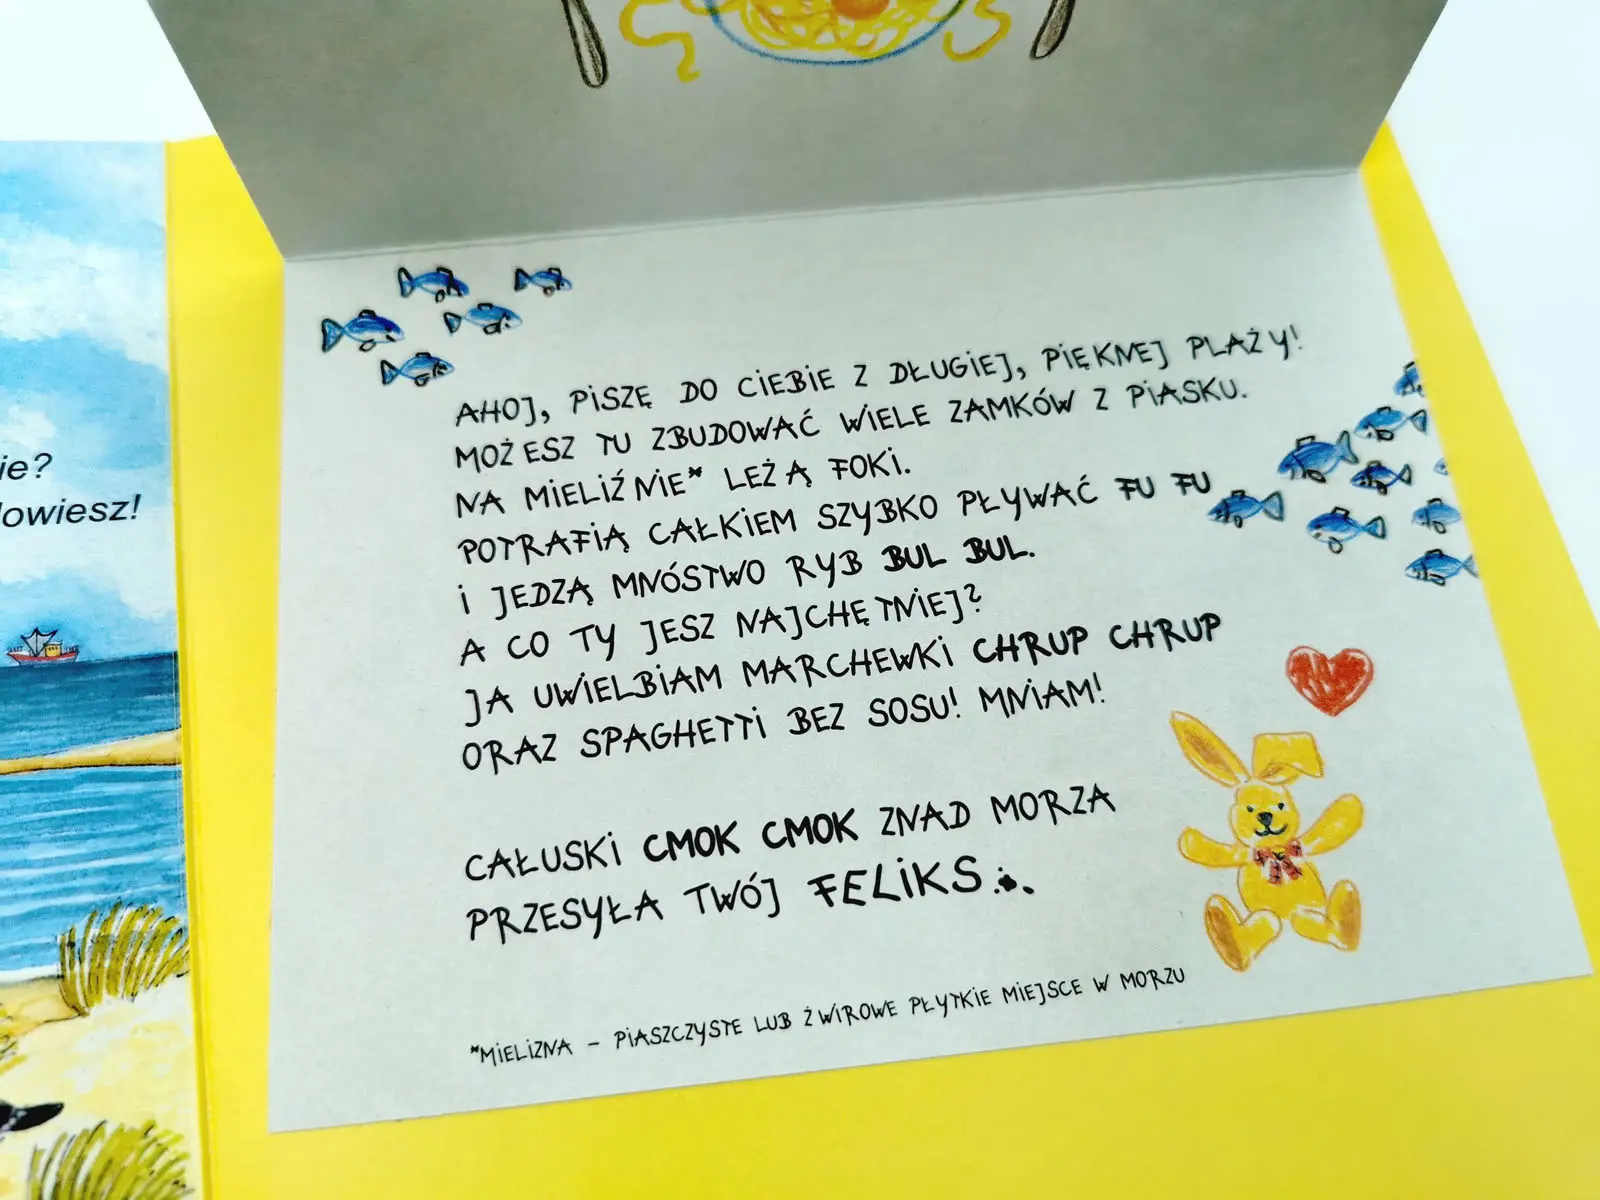 ie?
dowiesz!
AHOJ, PISZĘ DO CIEBIE Z DŁUGIEJ, PIĘKNEJ PLAŻY!
MOŻESZ TU ZBUDOWAĆ WIELE ZAMKÓW Z PIASKU.
NA MIELIŹNIE* LEŻĄ FOKI.
POTRAFIĄ CAŁKIEM SZYBKO PŁYWAĆ FU FU
I JEDZĄ MNÓSTWO RYB BUL BUL.
A CO TY JESZ NAJCHĘTNIEJ?
JA UWIELBIAM MARCHEWKI CHRUP CHRUP
ORAZ SPAGHETTI BEZ SOSU! MNIAM!
CAŁUSKI CMOK CMOK ZNAD MORZA
PRZESYŁA TWÓJ FELIKS
*MIELIZNA – PIASZCZYSTE LUB ŻWIROWE PŁYTKIE MIEJSCE W MORZU